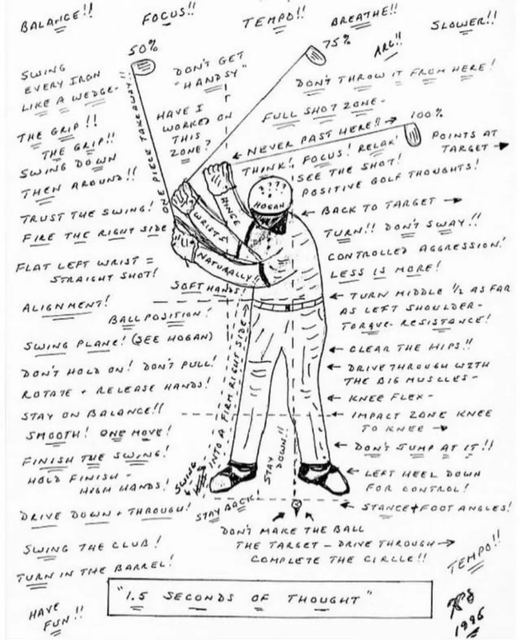 BALANCE!!
FOCUS!!
TEMPO!!
BREATHE!!
SLOWER!!
50%
75%
ARC!!
SWING
EVERY IRON
LIKE A WEDGE-
DON'T GET
"HANDSY"
DON'T THROW IT FROM HERE!
FULL SHOT ZONE-
100%
HAVE I
WORKED ON
THIS
ZONE?
ONE PIECE TAKEAWAY!!
THE GRIP!!
THE GRIP!!
NEVER PAST HERE!!
POINTS AT
TARGET
SWING DOWN
THEN AROUND!!
THINK! FOCUS! RELAX!
SEE THE SHOT!
POSITIVE GOLF THOUGHTS!
????
HOGAN
HINGE
WRISTS
NATURALLY!!
TRUST THE SWING!
FIRE THE RIGHT SIDE
BACK TO TARGET
TURN!! DON'T SWAY!!
CONTROLLED AGGRESSION!
LESS IS MORE!
FLAT LEFT WRIST =
STRAIGHT SHOT!
SOFT HANDS!
ALIGNMENT!
BALL POSITION!
TURN MIDDLE 1/2 AS FAR
AS LEFT SHOULDER-
TORQUE-RESISTANCE!
SWING PLANE! (SEE HOGAN)
CLEAR THE HIPS!!
DON'T HOLD ON! DON'T PULL!
DRIVE THROUGH WITH
THE BIG MUSCLES-
ROTATE + RELEASE HANDS!
KNEE FLEX-
STAY ON BALANCE!!
IMPACT ZONE KNEE
TO KNEE
SMOOTH! ONE MOVE!
DON'T JUMP AT IT!!
FINISH THE SWING!
HOLD FINISH-
HIGH HANDS!
LEFT HEEL DOWN
FOR CONTROL!
INTO A FIRM RIGHT SIDE
SWING
STAY
DOWN!!
DRIVE DOWN + THROUGH!
STAY BACK!
STANCE + FOOT ANGLES!
DON'T MAKE THE BALL
THE TARGET - DRIVE THROUGH
COMPLETE THE CIRCLE!!
SWING THE CLUB!
TURN IN THE BARREL!
TEMPO!!
"1.5 SECONDS OF THOUGHT"
HAVE
FUN!!
1996